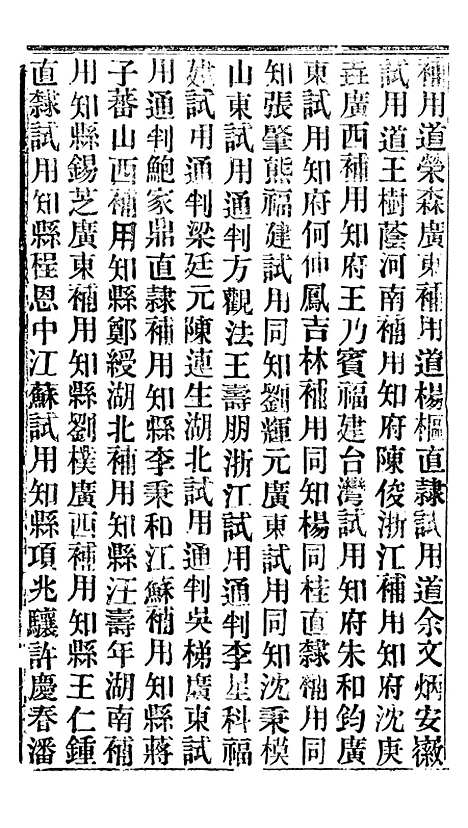 補用道榮森廣東補用道楊樞直隸試用道余文炳安徽
試用道王樹蔭河南補用知府陳俊浙江補用知府沈庚
垚廣西補用知府王乃賓福建台灣試用知府朱和鈞廣
東試用知府何仲鳳吉林補用同知楊同桂直隸補用同
知張肇熊福建試用同知劉輝元廣東試用同知沈秉模
山東試用通判方觀法王壽朋浙江試用通判李星科福
建試用通判梁廷元陳連生湖北試用通判吳梯廣東試
用通判鮑家鼎直隸補用知縣李秉和江蘇補用知縣蔣
子蕃山西補用知縣鄭綬湖北補用知縣汪壽年湖南補
用知縣錫芝廣東補用知縣劉樸廣西補用知縣王仁鍾
直隸試用知縣程恩中江蘇試用知縣項兆驤許慶春潘